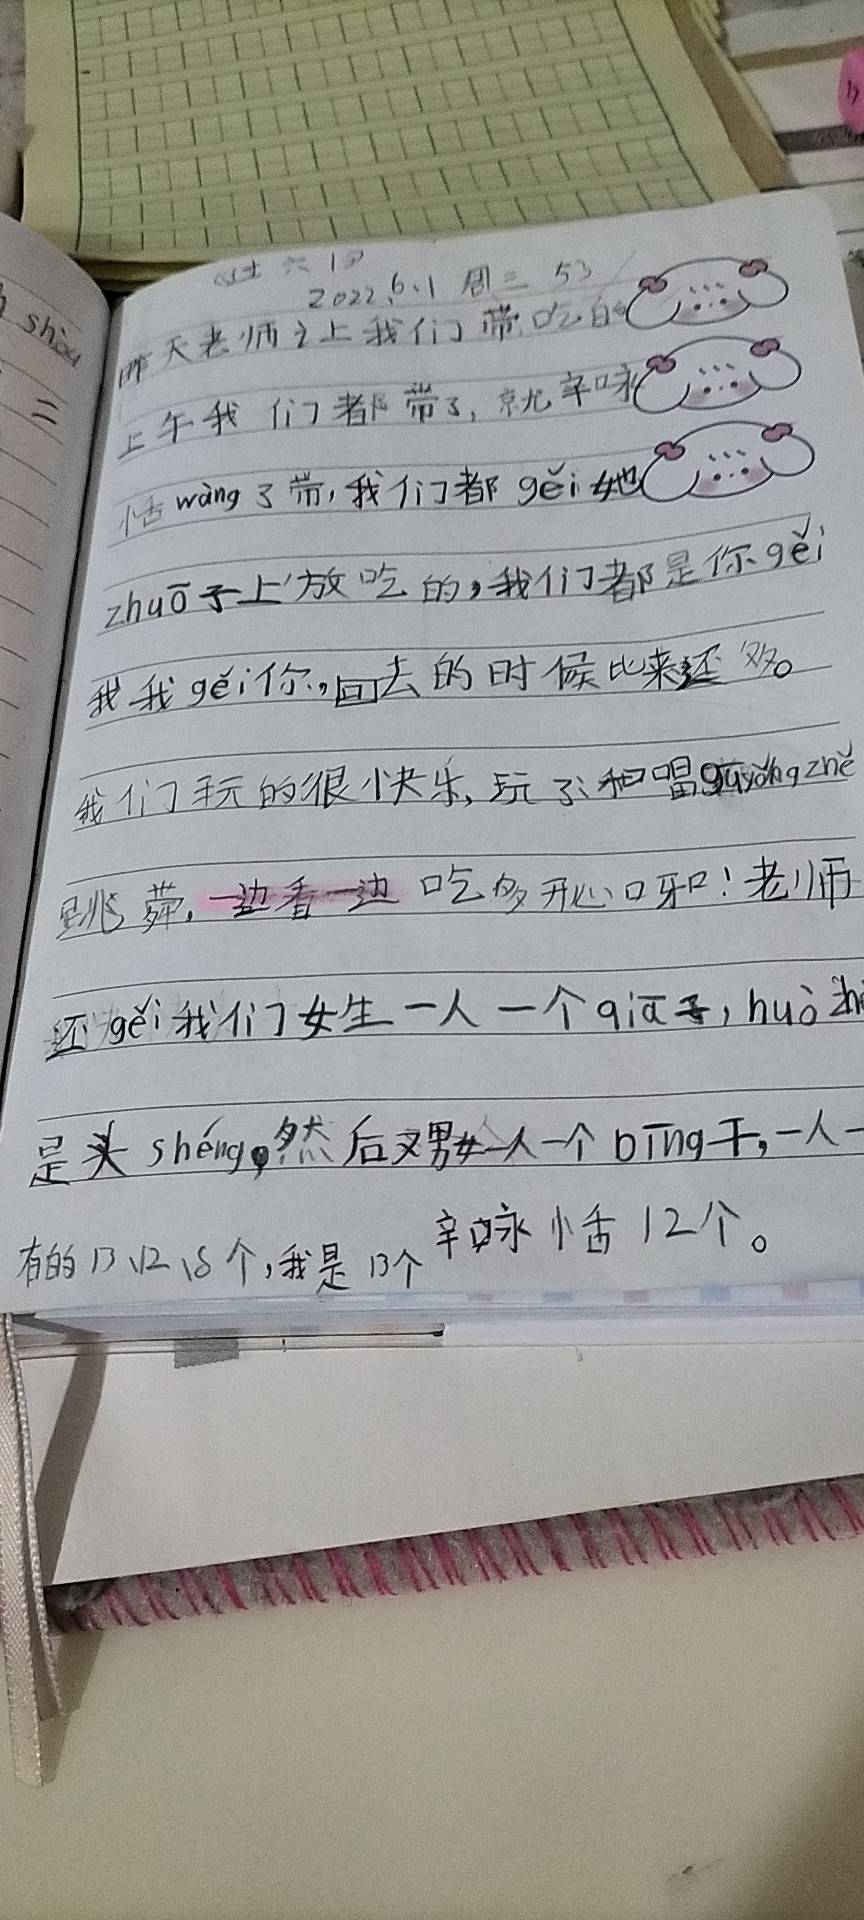 六 1日
2022.6.1 周三 53
昨天老师让我们带吃的
上午我们都带了,就辛咏
恬wàng了带,我们都gěi她
zhuō子上放吃的,我们都是你gěi
我我gěi你,回去的时候比来还多。
我们玩的很快乐,玩了和唱gūyǒngzhě
跳舞,一边看一边吃多开心呀!老师
还gěi我们女生一人一个qiā子,huò zh
是头shéng,然后又男女一人一个bǐng干,一人一
有的13、12、15个,我是13个辛咏恬12个。
shòu
二